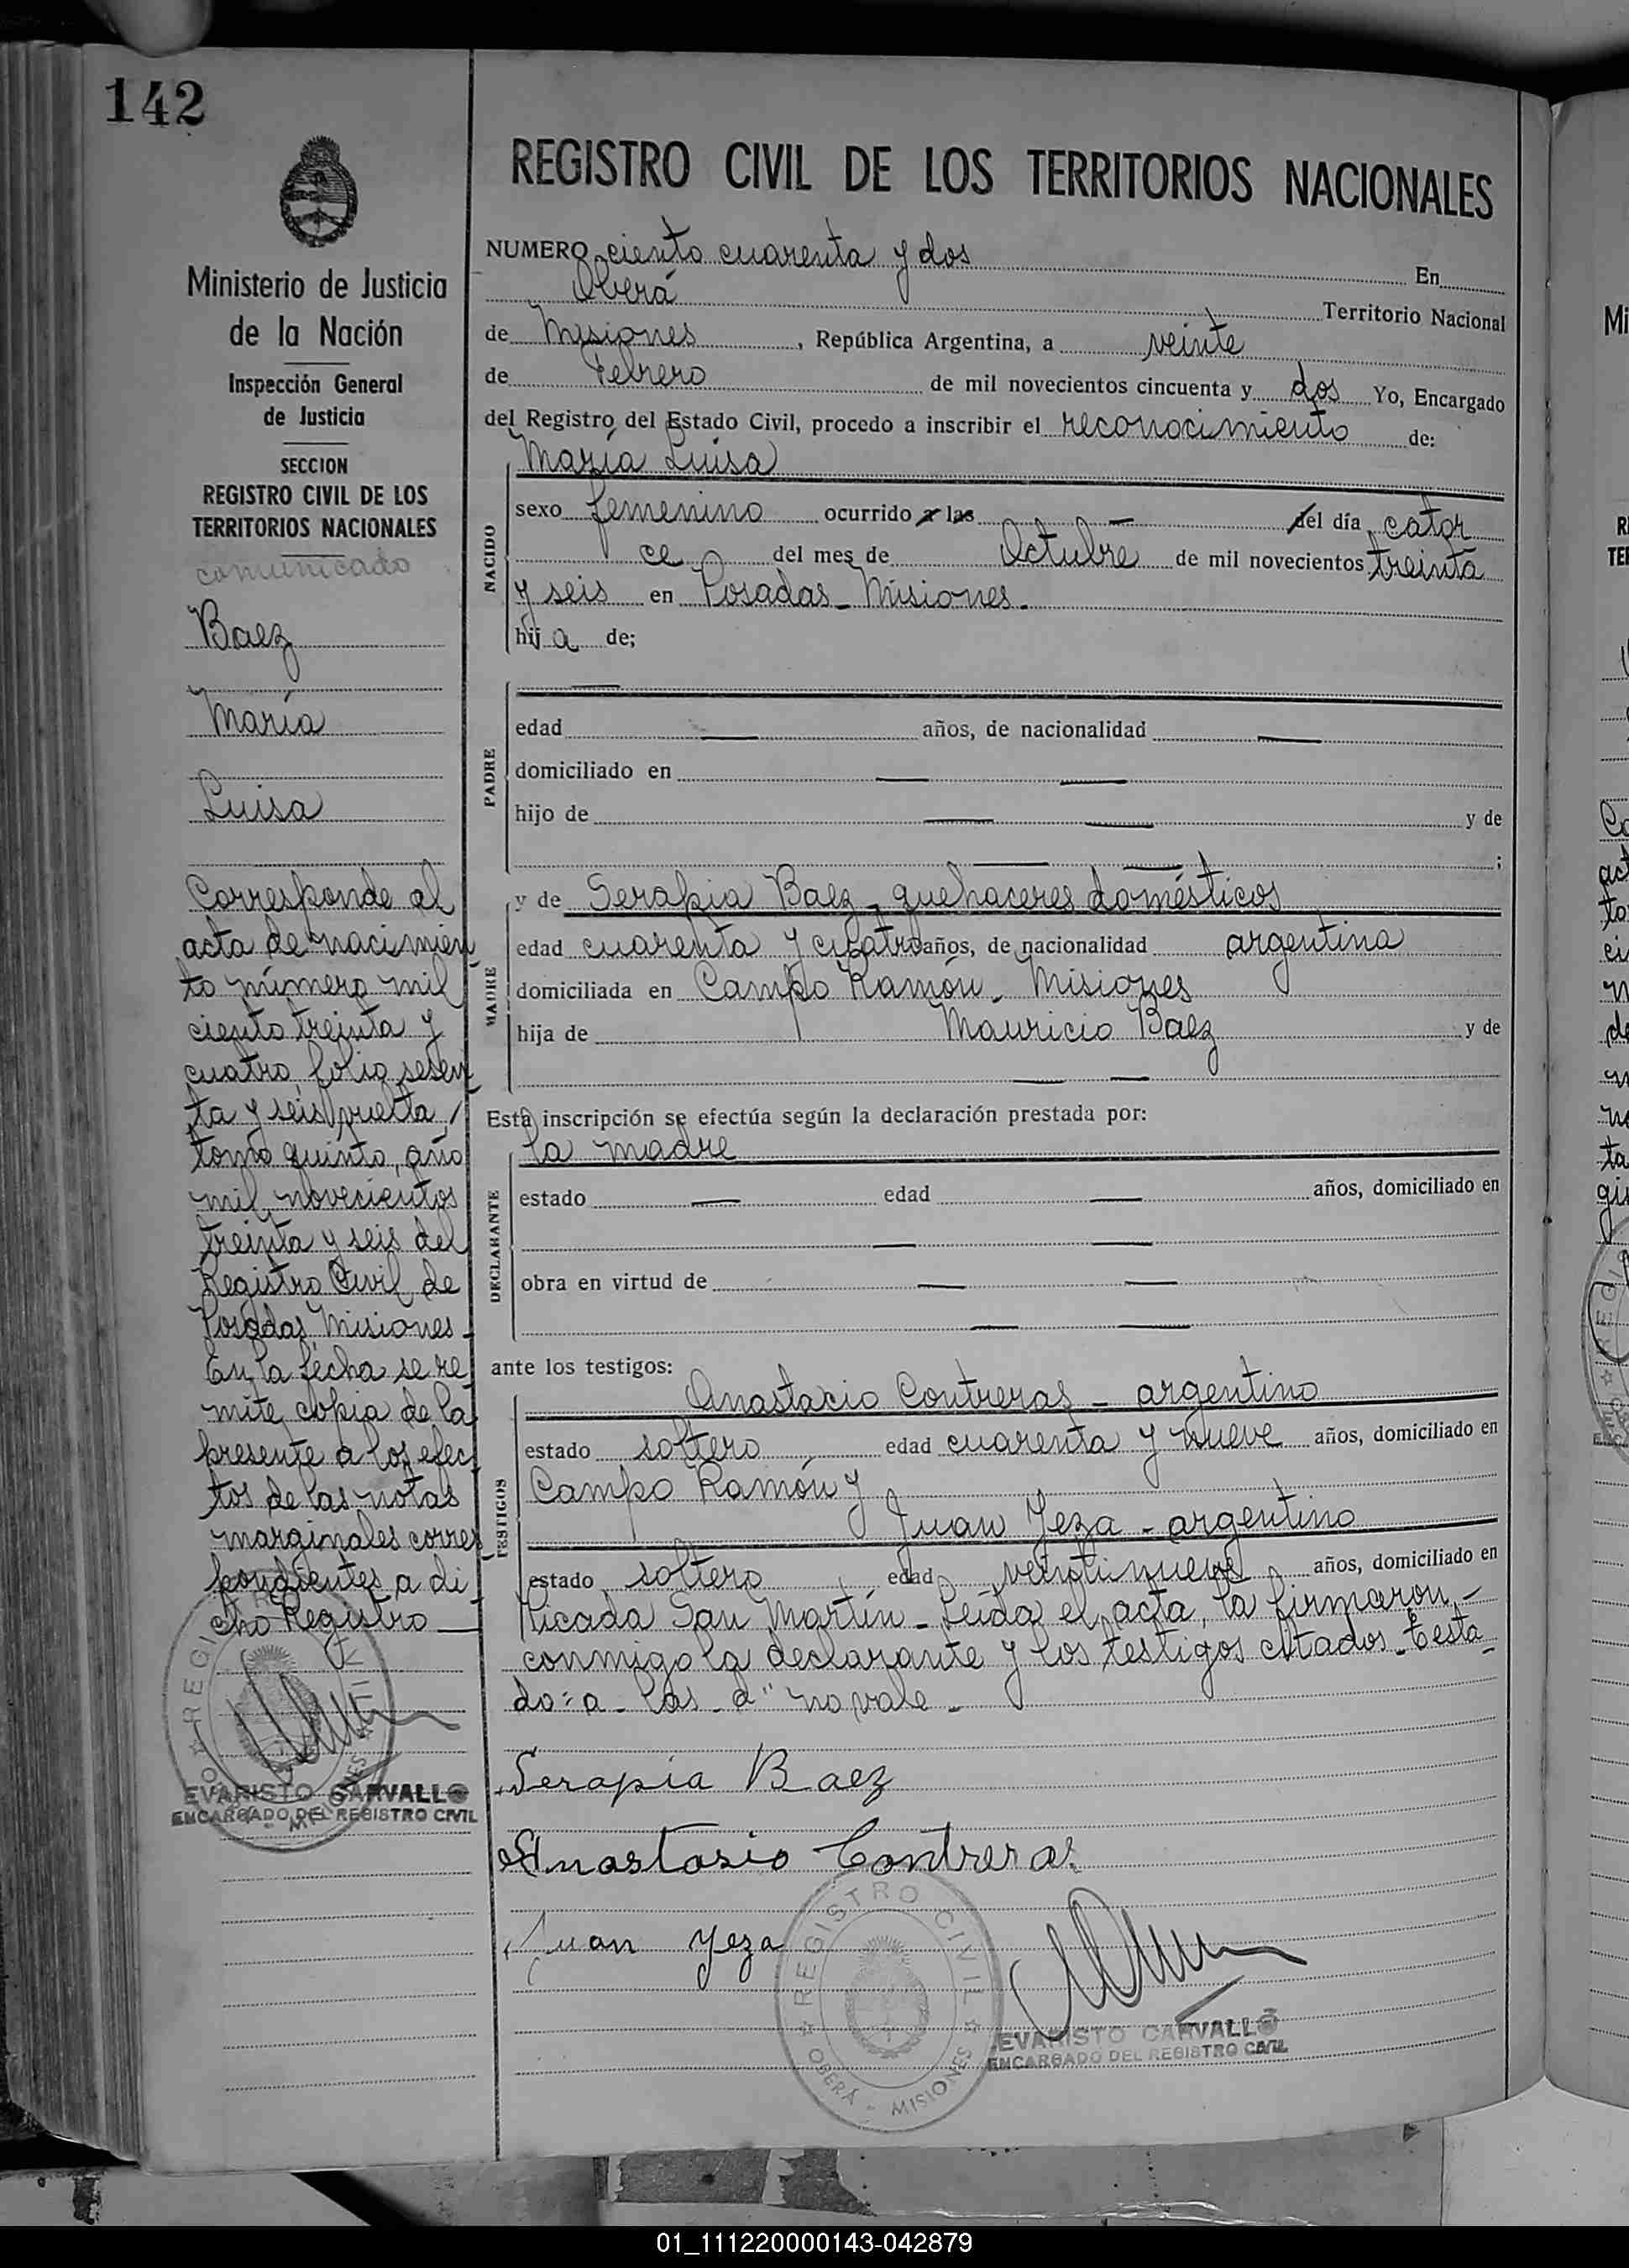 142
Ministerio de Justicia
de la Nación
Inspección General
de Justicia
SECCION
REGISTRO CIVIL DE LOS
TERRITORIOS NACIONALES
comunicado
Baez
María
Luisa
Corresponde al
acta de nacimien
to número mil
ciento treinta y
cuatro, folio sesen
ta y seis vuelta,
tomo quinto, año
mil novecientos
treinta y seis del
Registro Civil de
Posadas, Misiones-
En la fecha se re
mite copia de la
presente a los efec
tos de las notas
marginales corres
pondientes a di
cho Registro
EVARISTO CARVALLO
ENCARGADO DEL REGISTRO CIVIL
REGISTRO CIVIL DE LOS TERRITORIOS NACIONALES
NUMERO ciento cuarenta y dos En
Oberá Territorio Nacional
de Misiones, República Argentina, a veinte
de Febrero de mil novecientos cincuenta y dos Yo, Encargado
del Registro del Estado Civil, procedo a inscribir el reconocimiento de:
María Luisa
NACIDO
sexo femenino ocurrido a las — del día cator
ce del mes de Octubre de mil novecientos treinta
y seis en Posadas - Misiones.
hija de;
—
PADRE
edad — años, de nacionalidad —
domiciliado en — —
hijo de — — y de
— — ;
MADRE
y de Serapia Baez - quehaceres domésticos
edad cuarenta y cuatro años, de nacionalidad argentina
domiciliada en Campo Ramón - Misiones
hija de Mauricio Baez y de
— —
Esta inscripción se efectúa según la declaración prestada por:
la madre
DECLARANTE
estado — edad — años, domiciliado en
— —
obra en virtud de — —
— —
ante los testigos:
TESTIGOS
Anastacio Contreras - argentino
estado soltero edad cuarenta y nueve años, domiciliado en
Campo Ramón y
Juan Yeza - argentino
estado soltero edad veintinueve años, domiciliado en
Picada San Martín - Leída el acta, la firmaron -
conmigo la declarante y los testigos citados - Testa-
do: a - las - d" no vale -
Serapia Baez
Anastasio Contreras
Juan Yeza
REGISTRO CIVIL
OBERÁ - MISIONES
EVARISTO CARVALLO
ENCARGADO DEL REGISTRO CIVIL
01_111220000143-042879